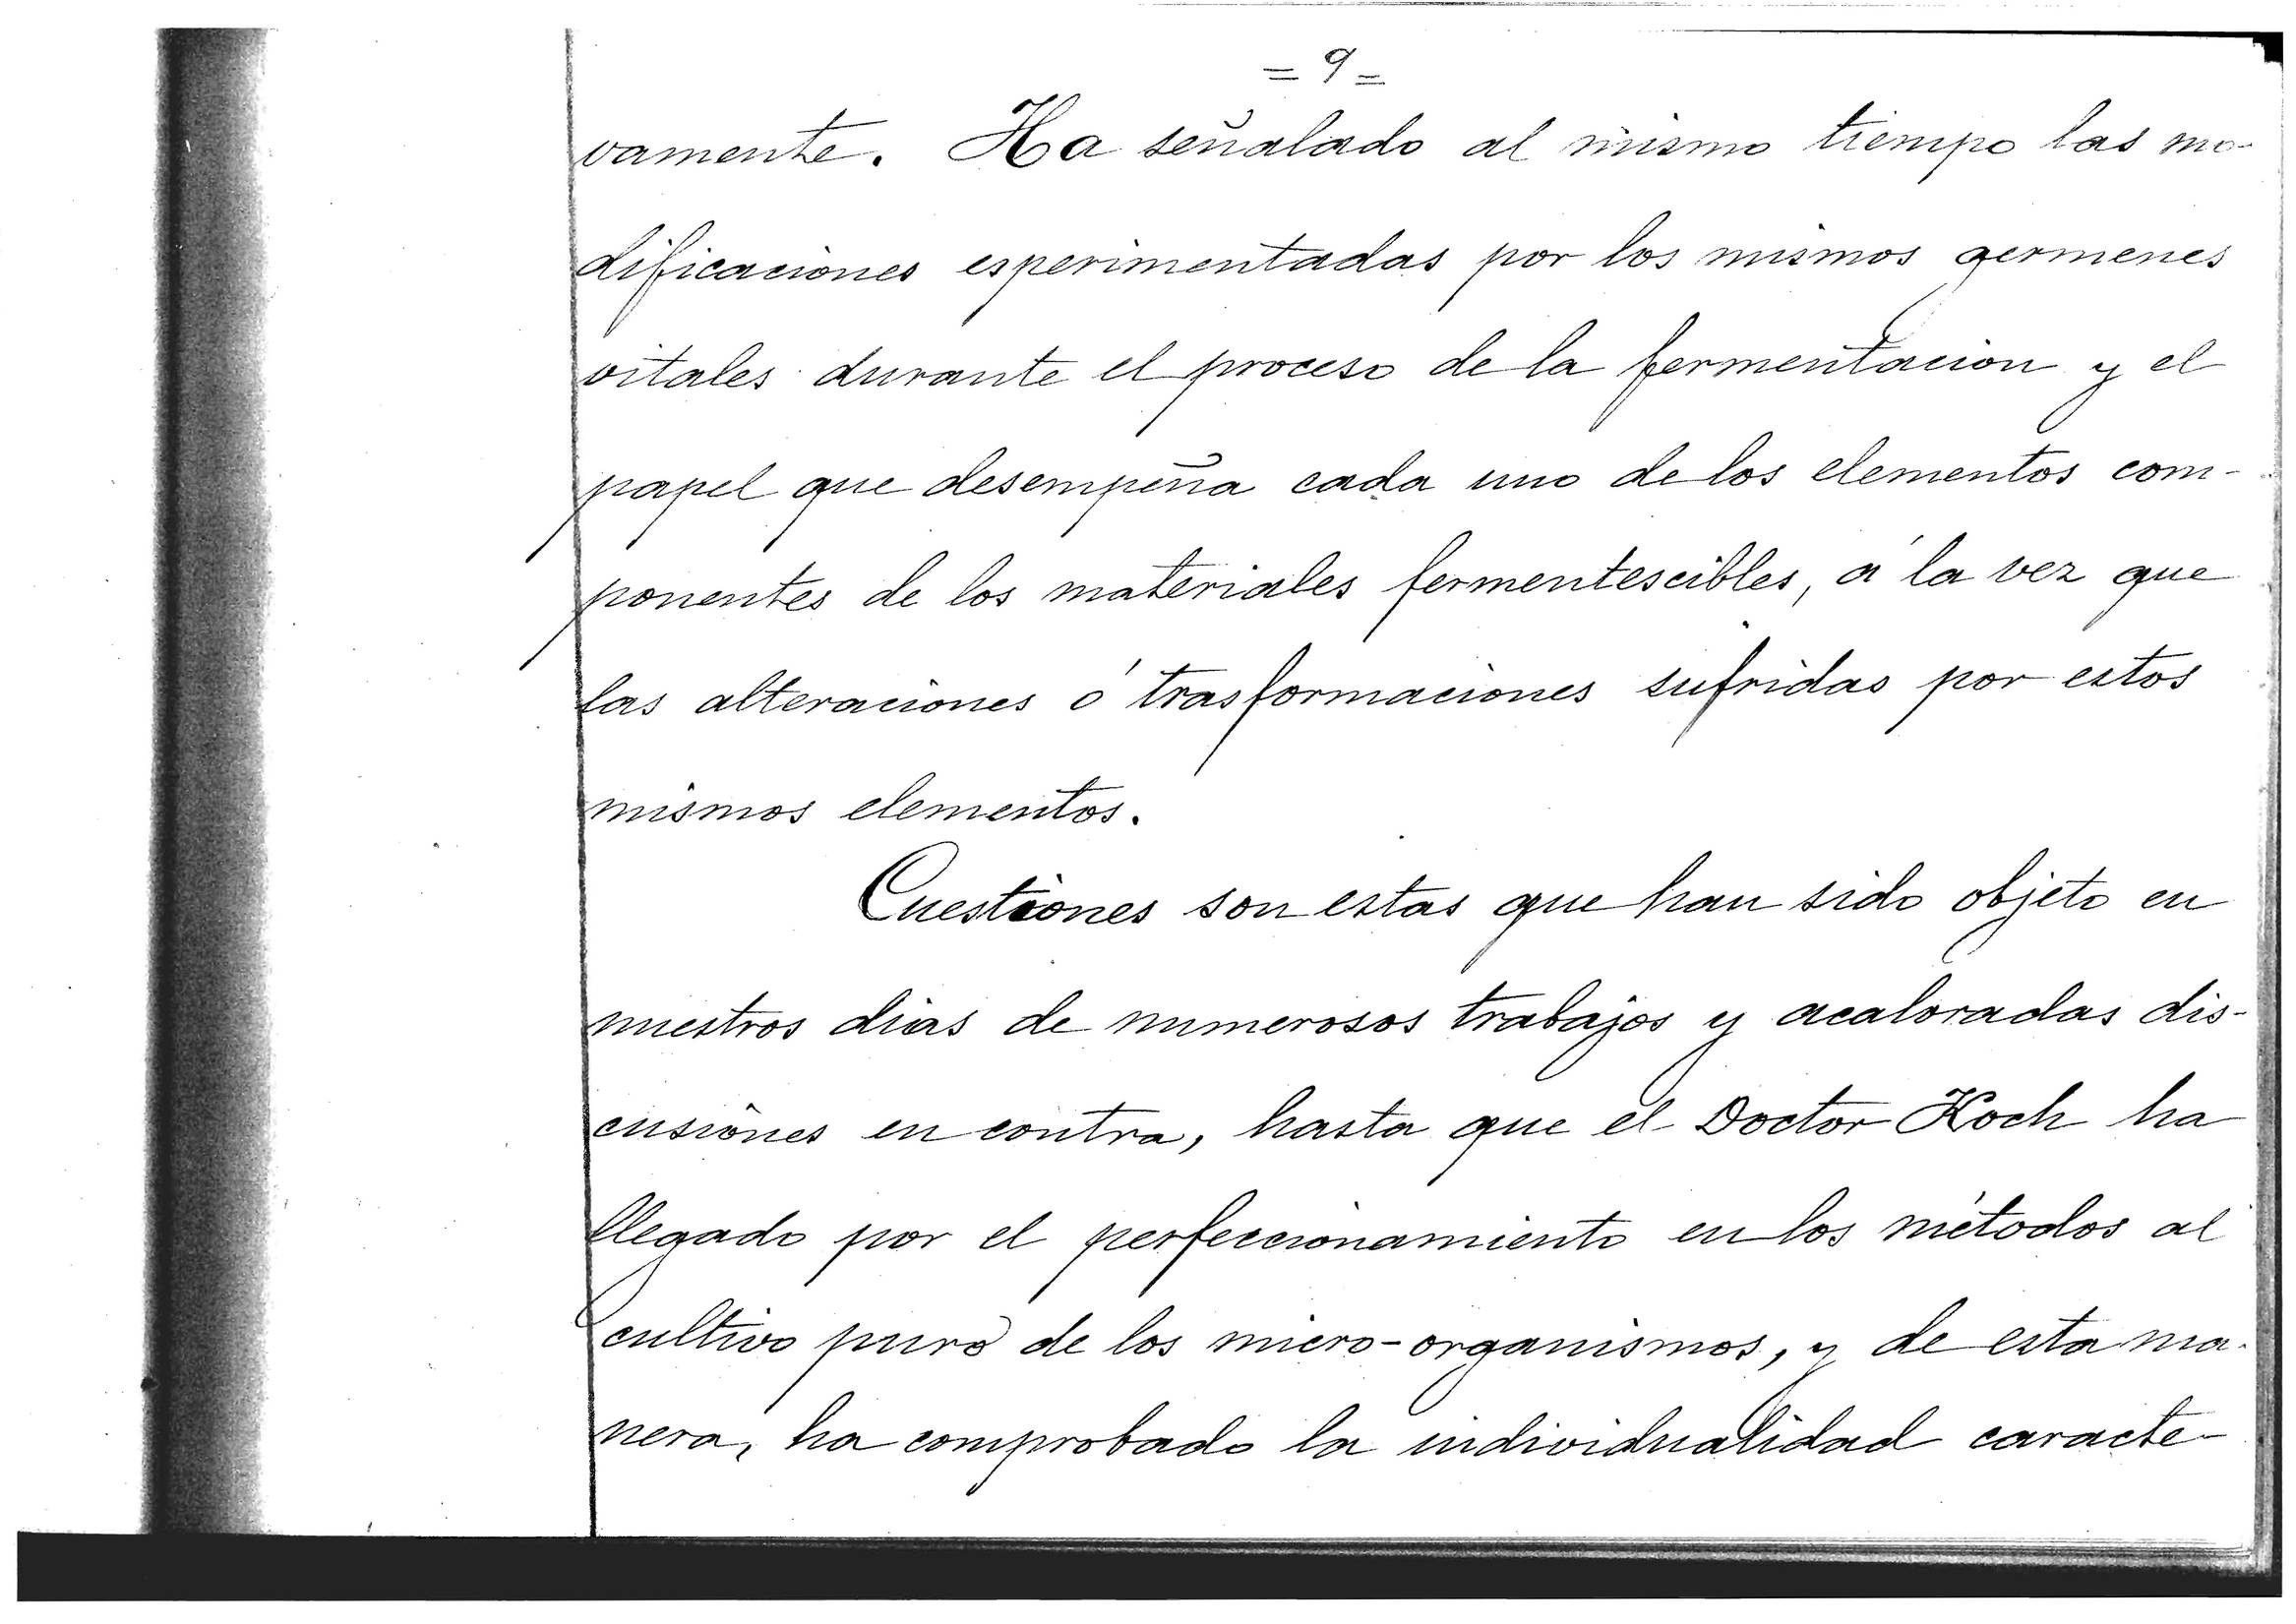 = 9 =
vamente. Ha señalado al mismo tiempo las mo-
dificaciones esperimentadas por los mismos germenes
vitales durante el proceso de la fermentacion y el
papel que desempeña cada uno de los elementos com-
ponentes de los materiales fermentescibles, á la vez que
las alteraciones ó trasformaciones sufridas por estos
mismos elementos.
Cuestiones son estas que han sido objeto en
nuestros dias de numerosos trabajos y acaloradas dis-
cusiones en contra, hasta que el Doctor Koch ha
llegado por el perfeccionamiento en los métodos al
cultivo puro de los micro-organismos, y de esta ma-
nera, ha comprobado la individualidad caracte-